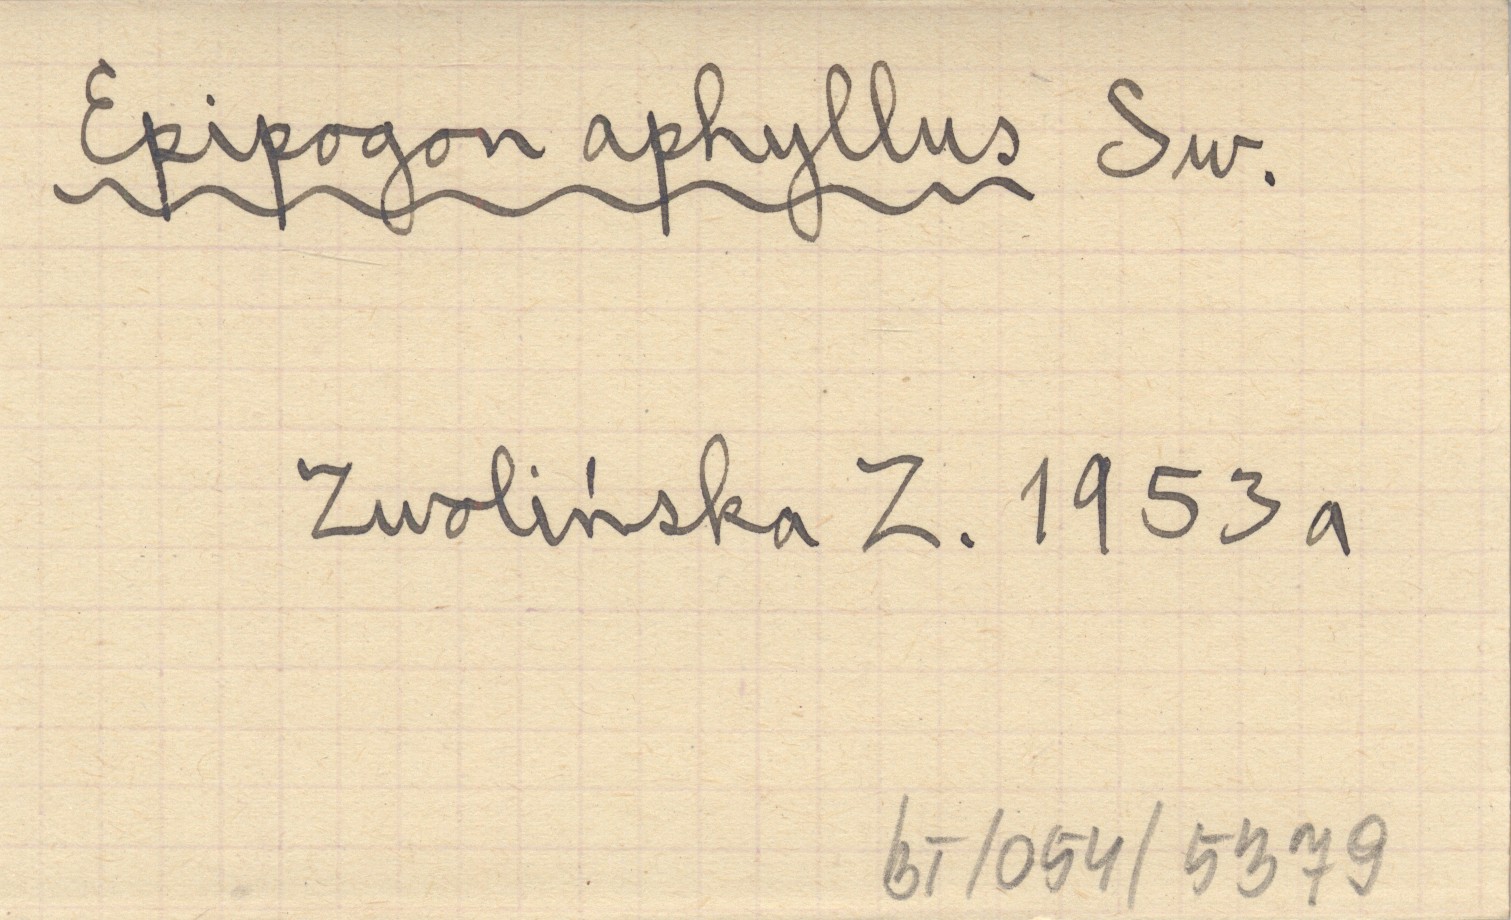 Epipogon aphyllus Sw.
Zwolińska Z. 1953a
bT/054/5379